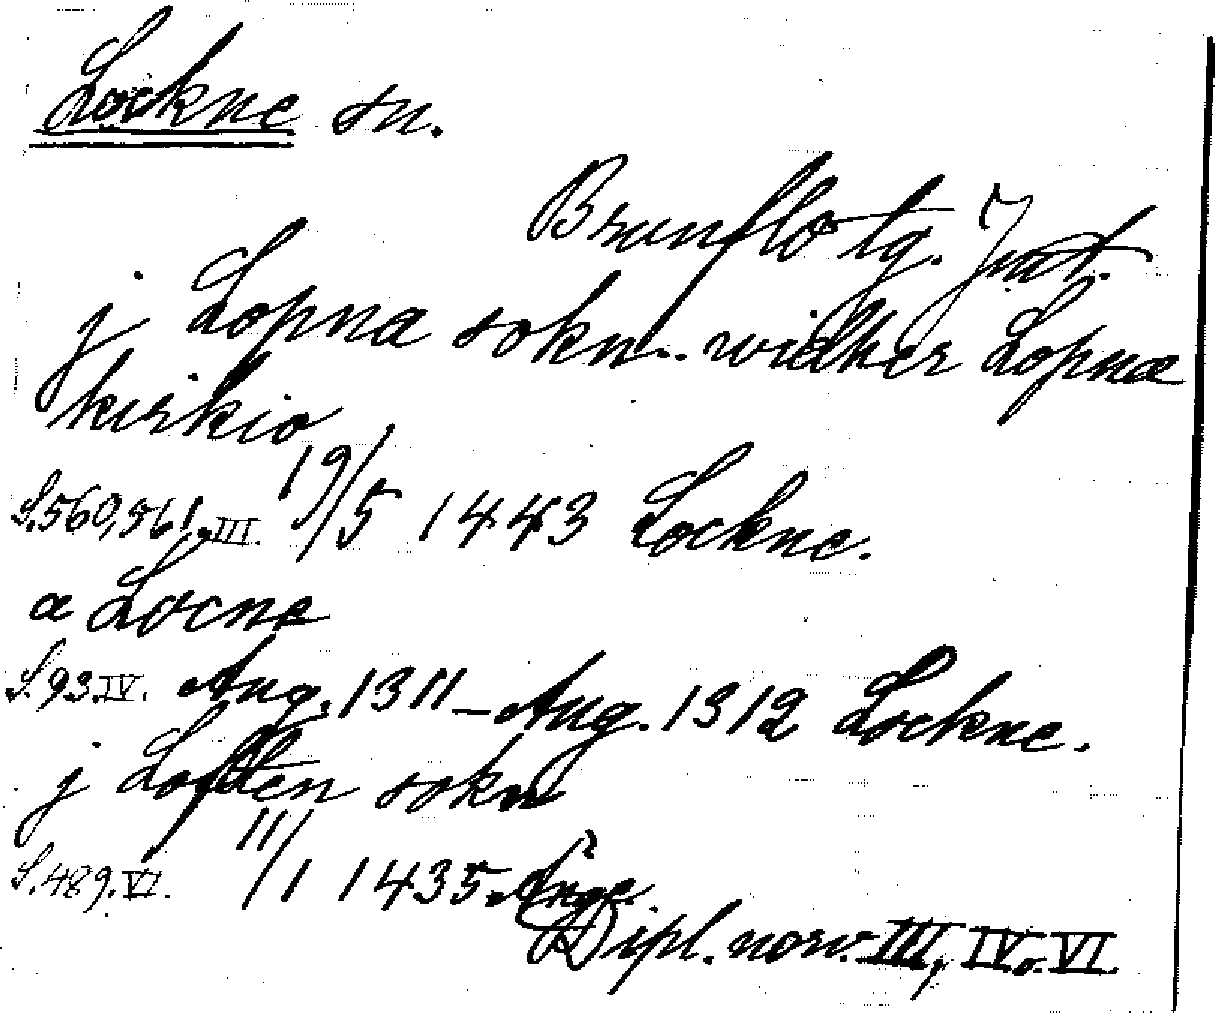 Lockne sn.
Brunflo tg. Jmt.
j Lopna sokn .. widher Lopnæ
kirkio
S. 560, 561. III. 19/5 1443 Lockne.
a Locne
S. 93. IV. Aug. 1311 – Aug. 1312 Lockne.
j Lopten sokn
S. 489. VI. 11/1 1435 Ånge.
Dipl. norv. III, IV o. VI.